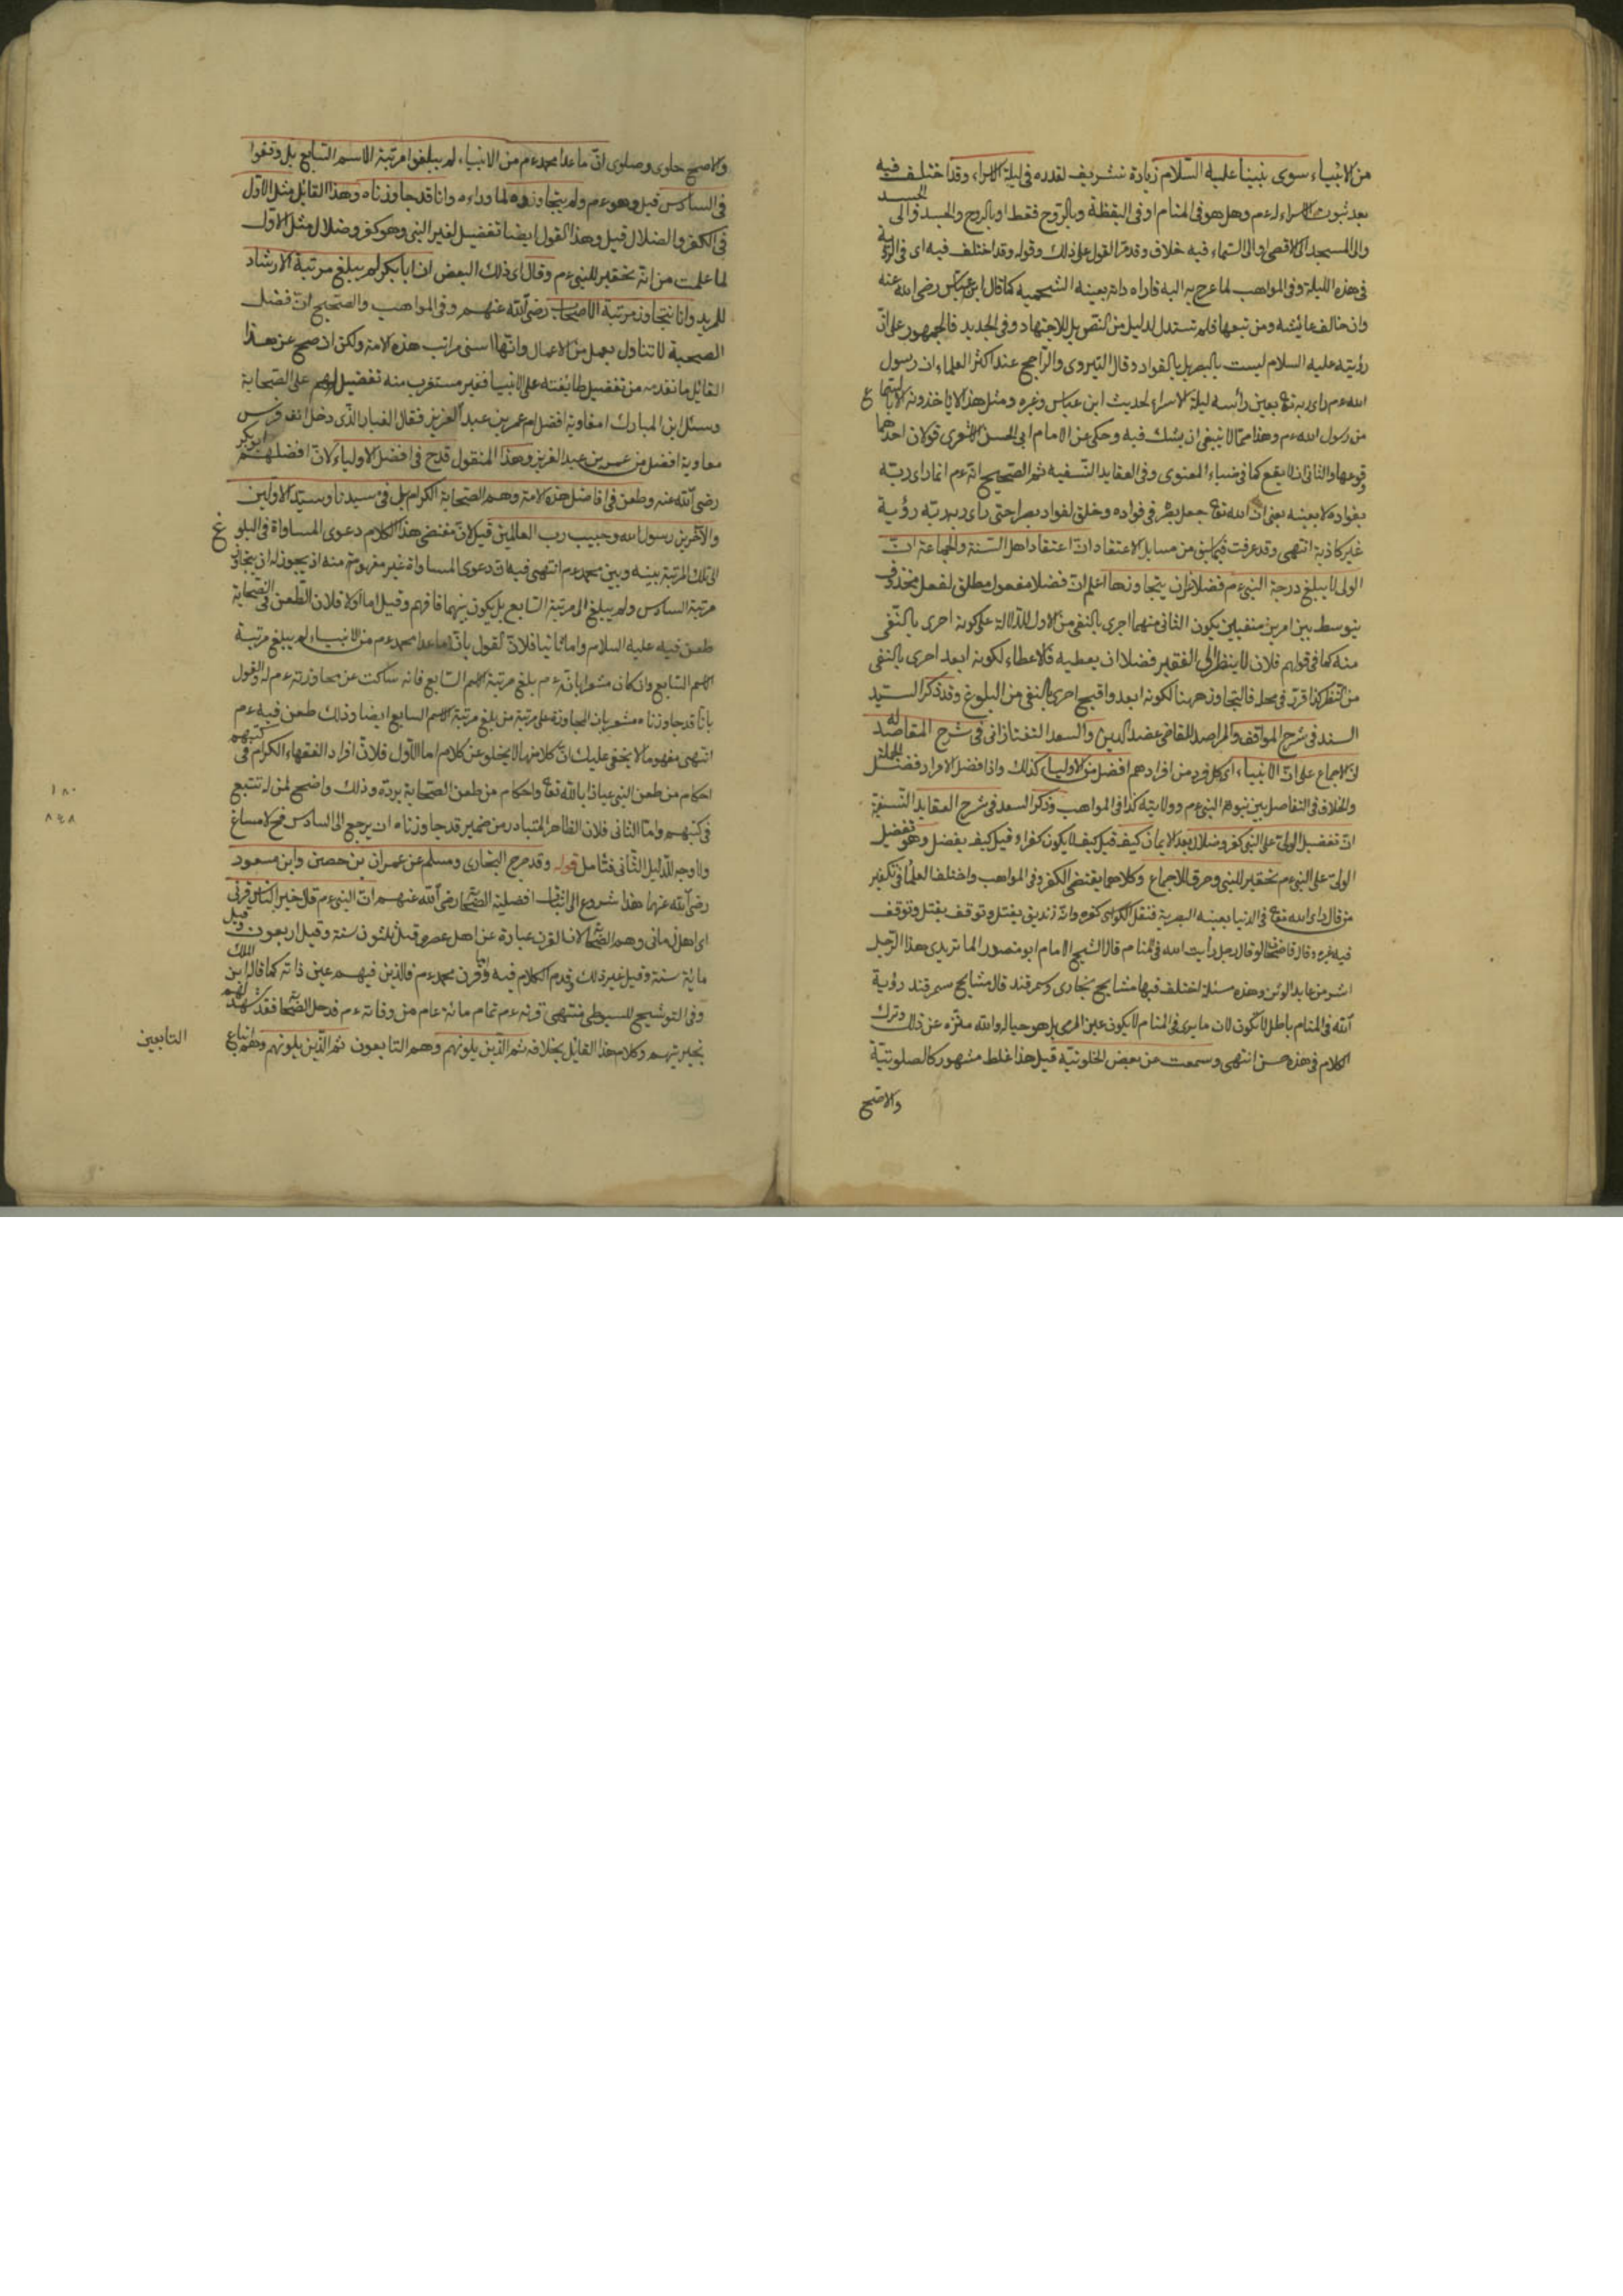 من الانبياء سوى نبينا عليه السلام زيادة تشريف لقدره فى ليلة الاسراء وقد اختلف فيه
بعد ثبوت الاسراء له عم وهل هو فى المنام او فى اليقظة وبالروح فقط او بالروح والجسد والى
والى المسجد الاقصى او الى السماء فيه خلاف وقد مر القول على ذلك وقوله وقد اختلف فيه اى فى الرؤية
فى هذه الليلة وفى المواهب لما عرج به اليه فاراه ذاته بعينه كما قال ابن عباس رضى الله عنه
وان خالف عايشه ومن تبعها فلم تستدل لدليل من النص بل للاجتهاد وفى الجديد فالجمهور على ان
رؤيته عليه السلام ليست بالبصر بل بالفواد وقال النووى والراجح عند اكثر العلماء ان رسول
الله عم راى ربه تع بعين رأسه ليلة الاسراء لحديث ابن عباس وغيره ومثل هذا لا ياخذونه الا بالسماع
من رسول الله عم وهذا مما لا ينبغى ان يشك فيه وحكى عن الامام ابى الحسن الاشعرى قولان احدهما
وقوعها والثانى ان لا يقع كما فى ضياء المعنوى وفى العقايد النسفيه ثم الصحيح انه عم انما راى ربه
بفواده لا بعينه يعنى ان الله تع جعل بصره فى فواده وخلق لفواده بصرا حتى راى ربه رؤية
غير كاذبة انتهى وقد عرفت فيما سبق من مسايل الاعتقاد ان اعتقاد اهل السنة والجماعة ان
الولى لا يبلغ درجة النبى عم فضلا عن ان يتجاوزها اعلم ان فضلا مفعول مطلق لفعل محذوف
يتوسط بين امرين منفيين يكون الثانى منهما احرى بالنفى من الاول للدلالة على كونه احرى بالنفى
منه كما فى قولهم فلان لا ينظر الى الفقير فضلا ان يعطيه فالاعطاء لكونه ابعد احرى بالنفى
من النظر كذا قرر فى محله فالتجاوز ههنا لكونه ابعد واقبح احرى بالنفى من البلوغ وقد ذكر السيد
السند فى شرح المواقف والمراصد للقاضى عضد الدين والسعد التفتازانى فى شرح المقاصد له
ان الاجماع على ان الانبياء اى كل فرد من افرادهم افضل من الاولياء كذلك واذا افضل الافراد فضل الجملة
والخلاف فى التفاضل بين نبوة النبى عم وولايته كذا فى المواهب وذكر السعد فى شرح العقايد النسفية
ان تفضيل الولى على النبى كفر وضلال بعد الايمان كيف قيل كيف لا يكون كفرا وقيل كيف يفضل وهو تفضيل
الولى على النبى عم تحقير للنبى وخرق للاجماع وكلاهما يقتضى الكفر وفى المواهب واختلف العلماء فى تكفير
من قال راى الله تع فى الدنيا بعينه البصرية فنقل الكواشى كفره وانه زنديق يقتل وتوقف يقتل وتوقف
فيه غيره وقال قاضيخان لو قال رجل رأيت الله فى المنام قال الشيخ الامام ابو منصور الماتريدى هذا الرجل
اشر من عابد الوثن وهذه مسئلة اختلف فيها مشايخ بخارى وسمرقند قال مشايخ سمرقند رؤية
الله فى المنام باطل لا تكون لان ما يرى فى المنام لا يكون عين المرئى بل هو خياله والله منزه عن ذلك وترك
الكلام فى هذه حسن انتهى وسمعت عن بعض الخلوتية قيل هذا غلط مشهور كالصلوتية
والاصح
والاصح خلوى وصلوى ان ما عدا محمد عم من الانبياء لم يبلغوا مرتبة الاسم السابع بل وقفوا
فى السادس قبل وهو عم ولم يتجاوزوه لما وراءه وانا قد جاوزناه وهذا القائل مثل الاول
فى الكفر والضلال قيل وهذا القول ايضا تفضيل لغير النبى وهو كفر وضلال مثل الاول
لما علمت من انه تحقير للنبى عم وقال اى ذلك البعض ان ابا بكر لم يبلغ مرتبة الارشاد
للمريد وانا نتجاوز مرتبة الاصحاب رضى الله عنهم وفى المواهب والصحيح ان فضل
الصحبة لا تناول بعمل من الاعمال وانها اسنى مراتب هذه الامة ولكن ان صح عن هذا
القائل ما تقدم من تفضيل طائفته على الانبيا فغير مستغرب منه تفضيلهم على الصحابة
وسئل ابن المبارك امعاوية افضل ام عمر بن عبد العزيز فقال الغبار الذى دخل انف فرس
معاوية افضل من عمر بن عبد العزيز وهذا المنقول قدح فى افضل الاولياء لان افضلهم ابو بكر
رضى الله عنه وطعن فى افاضل هذه الامة وهم الصحابة الكرام بل فى سيدنا وسيد الاولين
والآخرين رسول الله وحبيب رب العالمين قيل لان مقتضى هذا الكلام دعوى المساواة فى البلوغ
الى تلك المرتبة بينه وبين محمد عم انتهى فيه ان دعوى المساواة غير مفهومة منه اذ يجوز له ان يتجاوز
مرتبة السادس ولم يبلغ الى مرتبة السابع بل يكون بينهما فافهم وقيل اما اولا فلان الطعن فى الصحابة
طعن فيه عليه السلام واما ثانيا فلان القول بان ما عدا محمد عم من الانبياء لم يبلغ مرتبة
الاسم السابع وان كان مشعرا بانه عم بلغ مرتبة الاسم السابع فانه ساكت عن مجاوزته عم له والقول
بانا قد جاوزناه مشعر بان المجاوزة على مرتبة من بلغ مرتبة الاسم السابع ايضا وذلك طعن فيه عم
انتهى مفهوما لا يخفى عليك ان كلا منهما لا يخلو عن كلام اما الاول فلان افراد الفقهاء الكرام فى كتبهم
احكام من طعن النبى عياذا بالله تع واحكام من طعن الصحابة يرده وذلك واضح لمن له تتبع
فى كتبهم واما الثانى فلان الظاهر المتبادر من ضمير قد جاوزناه ان يرجع الى السادس فح لا مساغ
والا وجه للدليل الثانى فتامل قوله وقد خرج البخارى ومسلم عن عمران بن حصين وابن مسعود
رضى الله عنهما هذا شروع الى اثبات افضلية الصحابة رضى الله عنهم ان النبى عم قال خير الناس قرنى
اى اهل زمانى وهم الصحابة لان القرن عبارة عن اهل عصره قيل ثلثون سنة وقيل اربعون وقيل
مائة سنة وقيل غير ذلك وقد مر الكلام فيه وقرن محمد عم فالذين فيهم عين ذاته كما قاله ابن الملك
وفى التوشيح للسيوطى منتهى قرنه عم تمام مائة عام من وفاته عم فدخل الصحابة فقد شهد لهم
بخيريتهم وكلام هذا القائل بخلافه ثم الذين يلونهم وهم التابعون ثم الذين يلونهم وهم اتباع
التابعين
١٨٠